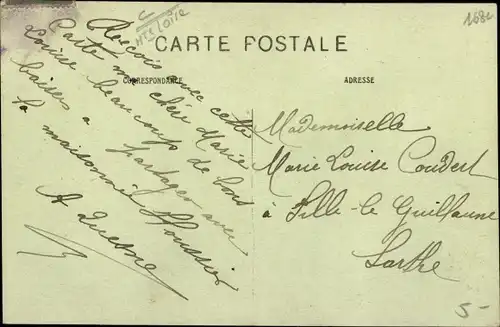 C
Hte Loire
168c
CARTE POSTALE
CORRESPONDANCE
ADRESSE
Reçois avec cette
Carte ma chère Marie
Louise beaucoup de bons
baisers à partager avec
la maisonnée Houssier
A Duesne
Mademoiselle
Marie Louise Coudert
à Fillé-le Guillaume
Sarthe
5-